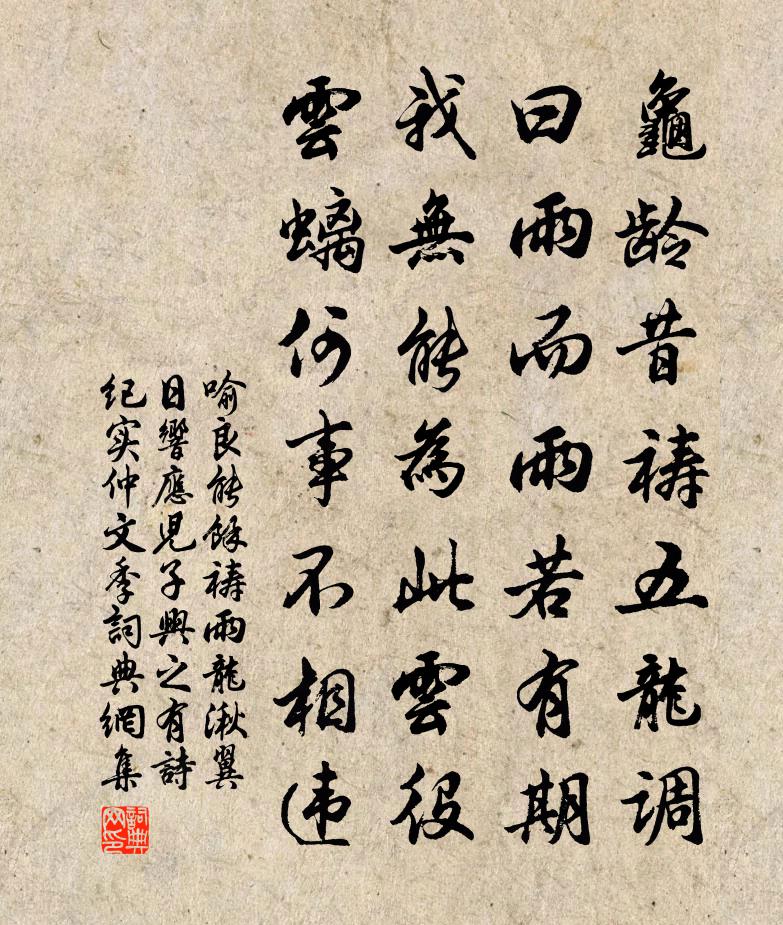 龜龄昔祷五龍调
曰雨而雨若有期
我無能為此雲役
雲螭何事不相违
喻良能馀祷雨龍湫翼
日響應児子興之有詩
纪实仲文季詞典網集
詞典
网印